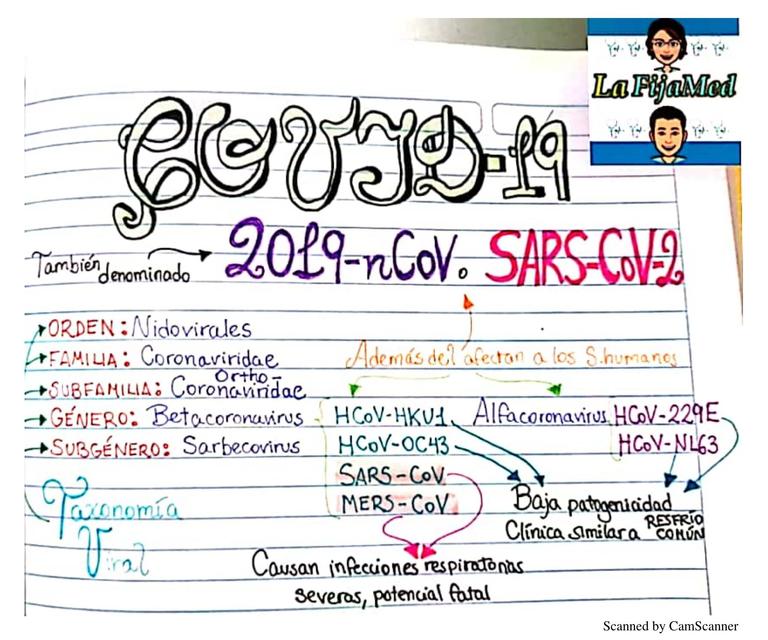 La FijaMed
COVID-19
También denominado 2019-nCoV o SARS-CoV-2
ORDEN: Nidovirales
FAMILIA: Coronaviridae
Además del afectan a los S.humanos
SUBFAMILIA: Ortho-Coronaviridae
GÉNERO: Betacoronavirus HCoV-HKU1 Alfacoronavirus HCoV-229E
SUBGÉNERO: Sarbecovirus HCoV-OC43 HCoV-NL63
SARS-CoV
MERS-CoV
Taxonomía
Viral
Baja patogenicidad
Clínica similar a RESFRÍO COMÚN
Causan infecciones respiratorias
severas, potencial fatal
Scanned by CamScanner